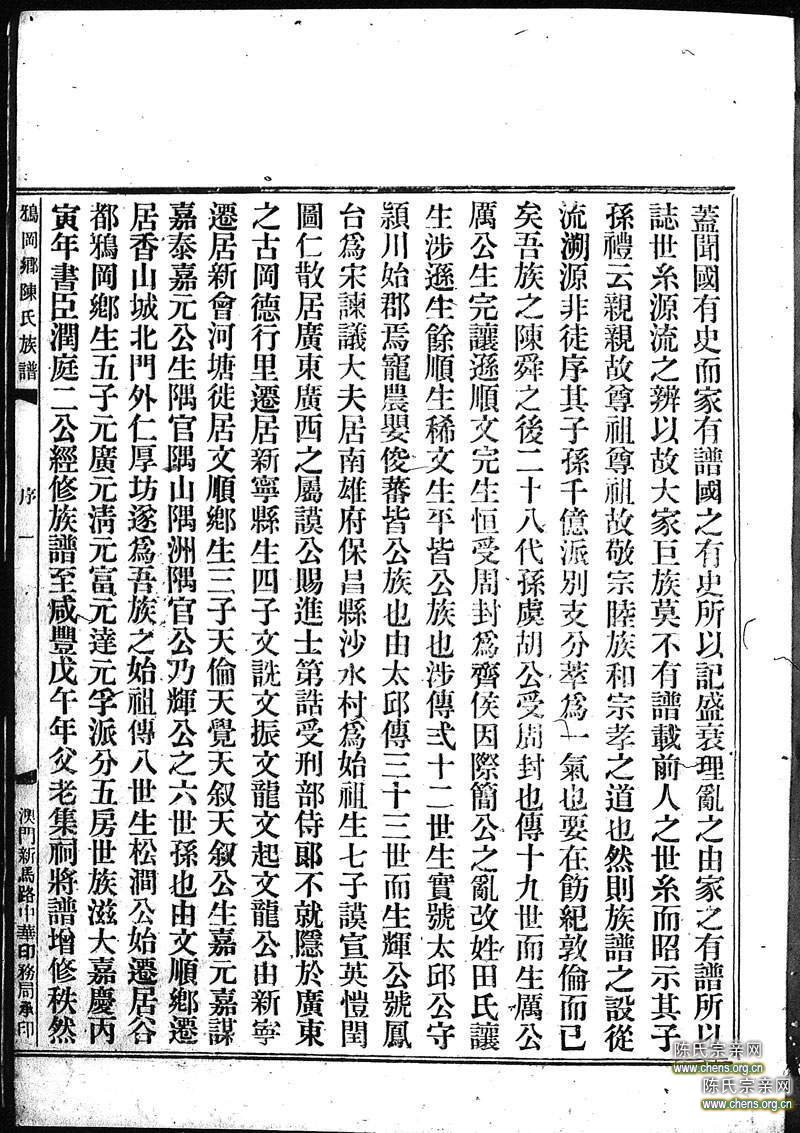 蓋聞國有史而家有譜國之有史所以記盛衰理亂之由家之有譜所以
誌世系源流之辨以故大家巨族莫不有譜載前人之世系而昭示其子
孫禮云親親故尊祖尊祖故敬宗睦族和宗孝之道也然則族譜之設從
流溯源非徒序其子孫千億派別支分萃爲一氣也要在飭紀敦倫而已
矣吾族之陳舜之後二十八代孫虞胡公受周封也傳十九世而生厲公
厲公生完讓遜順文完生恒受周封爲齊侯因際簡公之亂改姓田氏讓
生涉遜生餘順生稀文生平皆公族也涉傳弍十二世生實號太邱公守
潁川始郡焉寵農嬰俊蕃皆公族也由太邱傳三十三世而生輝公號鳳
台爲宋諫議大夫居南雄府保昌縣沙水村爲始祖生七子謨宣英愷閏
圖仁散居廣東廣西之屬謨公賜進士第誥受刑部侍郎不就隱於廣東
之古岡德行里遷居新寧縣生四子文詵文振文龍文起文龍公由新寧
遷居新會河塘徙居文順鄉生三子天倫天覺天叙天叙公生嘉元嘉謀
嘉泰嘉元公生隅官隅山隅洲隅官公乃輝公之六世孫也由文順鄉遷
居香山城北門外仁厚坊遂爲吾族之始祖傳八世生松澗公始遷居谷
都鴉岡鄉生五子元廣元清元富元達元孚派分五房世族滋大嘉慶丙
寅年書臣潤庭二公經修族譜至咸豐戊午年父老集祠將譜增修秩然
鴉岡鄉陳氏族譜
序
一
澳門新馬路中華印務局承印
陈氏宗亲网
www.chens.org.cn
陈氏宗亲网
www.chens.org.cn